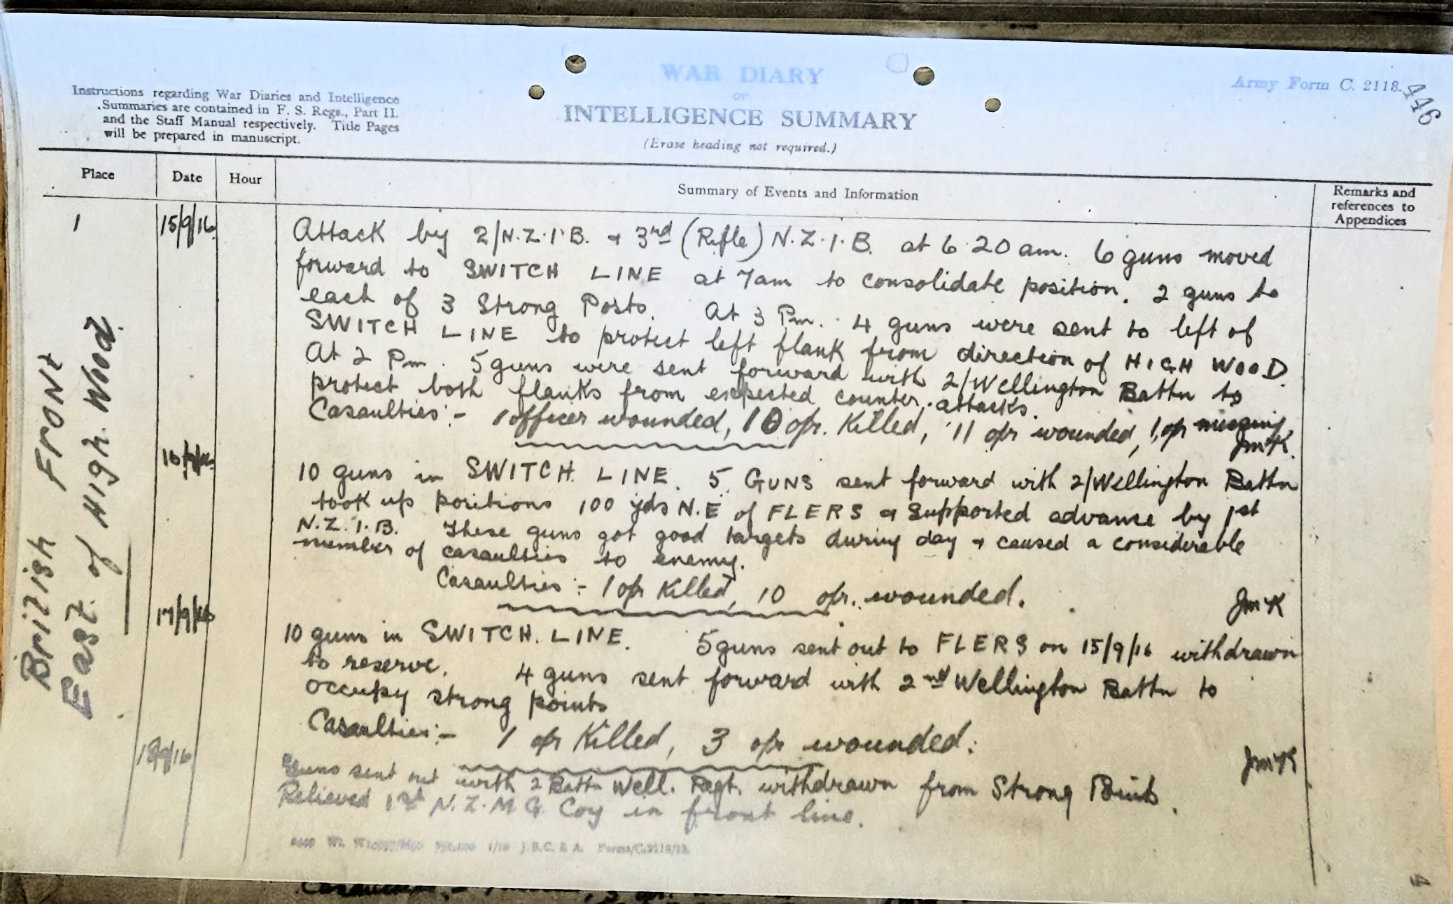 WAR DIARY
or
INTELLIGENCE SUMMARY
(Erase heading not required.)
Army Form C. 2118.
446
Instructions regarding War Diaries and Intelligence
Summaries are contained in F. S. Regs., Part II.
and the Staff Manual respectively. Title Pages
will be prepared in manuscript.
Place Date Hour Summary of Events and Information Remarks and references to Appendices
British FRONT
East of High Wood
1 15/9/16 Attack by 2/N.Z.I.B. & 3rd (Rifle) N.Z.I.B. at 6.20 am. 6 guns moved
forward to SWITCH LINE at 7am to consolidate position. 2 guns to
each of 3 Strong Posts. At 3 Pm. 4 guns were sent to left of
SWITCH LINE to protect left flank from direction of HIGH WOOD.
At 2 Pm. 5 guns were sent forward with 2/Wellington Battn to
protect both flanks from expected counter attacks.
Casaulties:- 1 officer wounded, 10 o/r. Killed, 11 o/r wounded, 1 o/r missing
JMcK.
16/9/16 10 guns in SWITCH LINE. 5 GUNS sent forward with 2/Wellington Battn
took up positions 100 yds N.E of FLERS & supported advance by 1st
N.Z.I.B. These guns got good targets during day & caused a considerable
number of casaulties to enemy.
Casaulties:- 1 o/r Killed, 10 o/r. wounded.
JMcK
17/9/16 10 guns in SWITCH. LINE. 5 guns sent out to FLERS on 15/9/16 withdrawn
to reserve. 4 guns sent forward with 2nd Wellington Battn to
occupy strong points
Casaulties:- 1 o/r Killed, 3 o/r wounded.
JMcK
18/9/16 Guns sent out with 2 Battn Well. Regt. withdrawn from Strong Points.
Relieved 1st N.Z.M.G. Coy in front line.
4